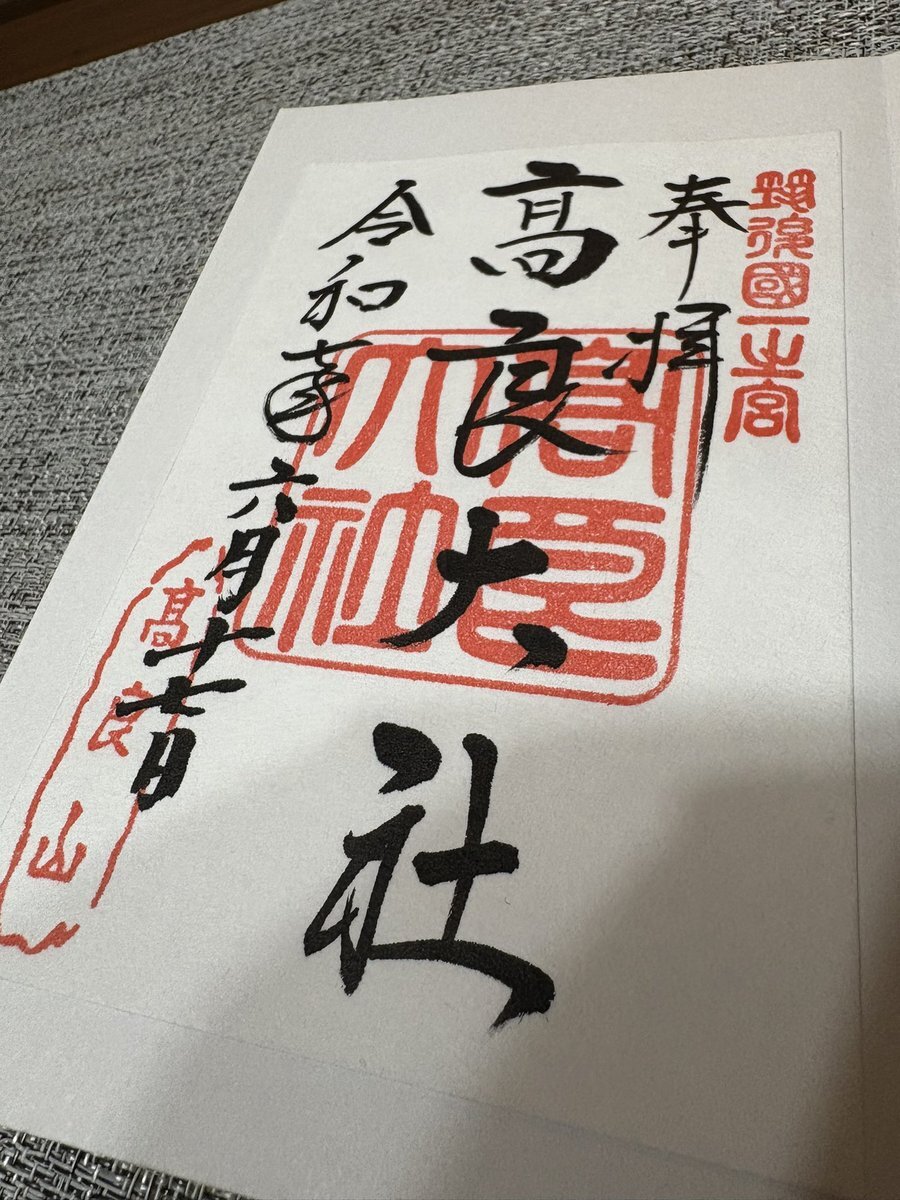 筑後國一之宮
奉拝
髙良大社
高良大社
令和年六月十七日
髙良山